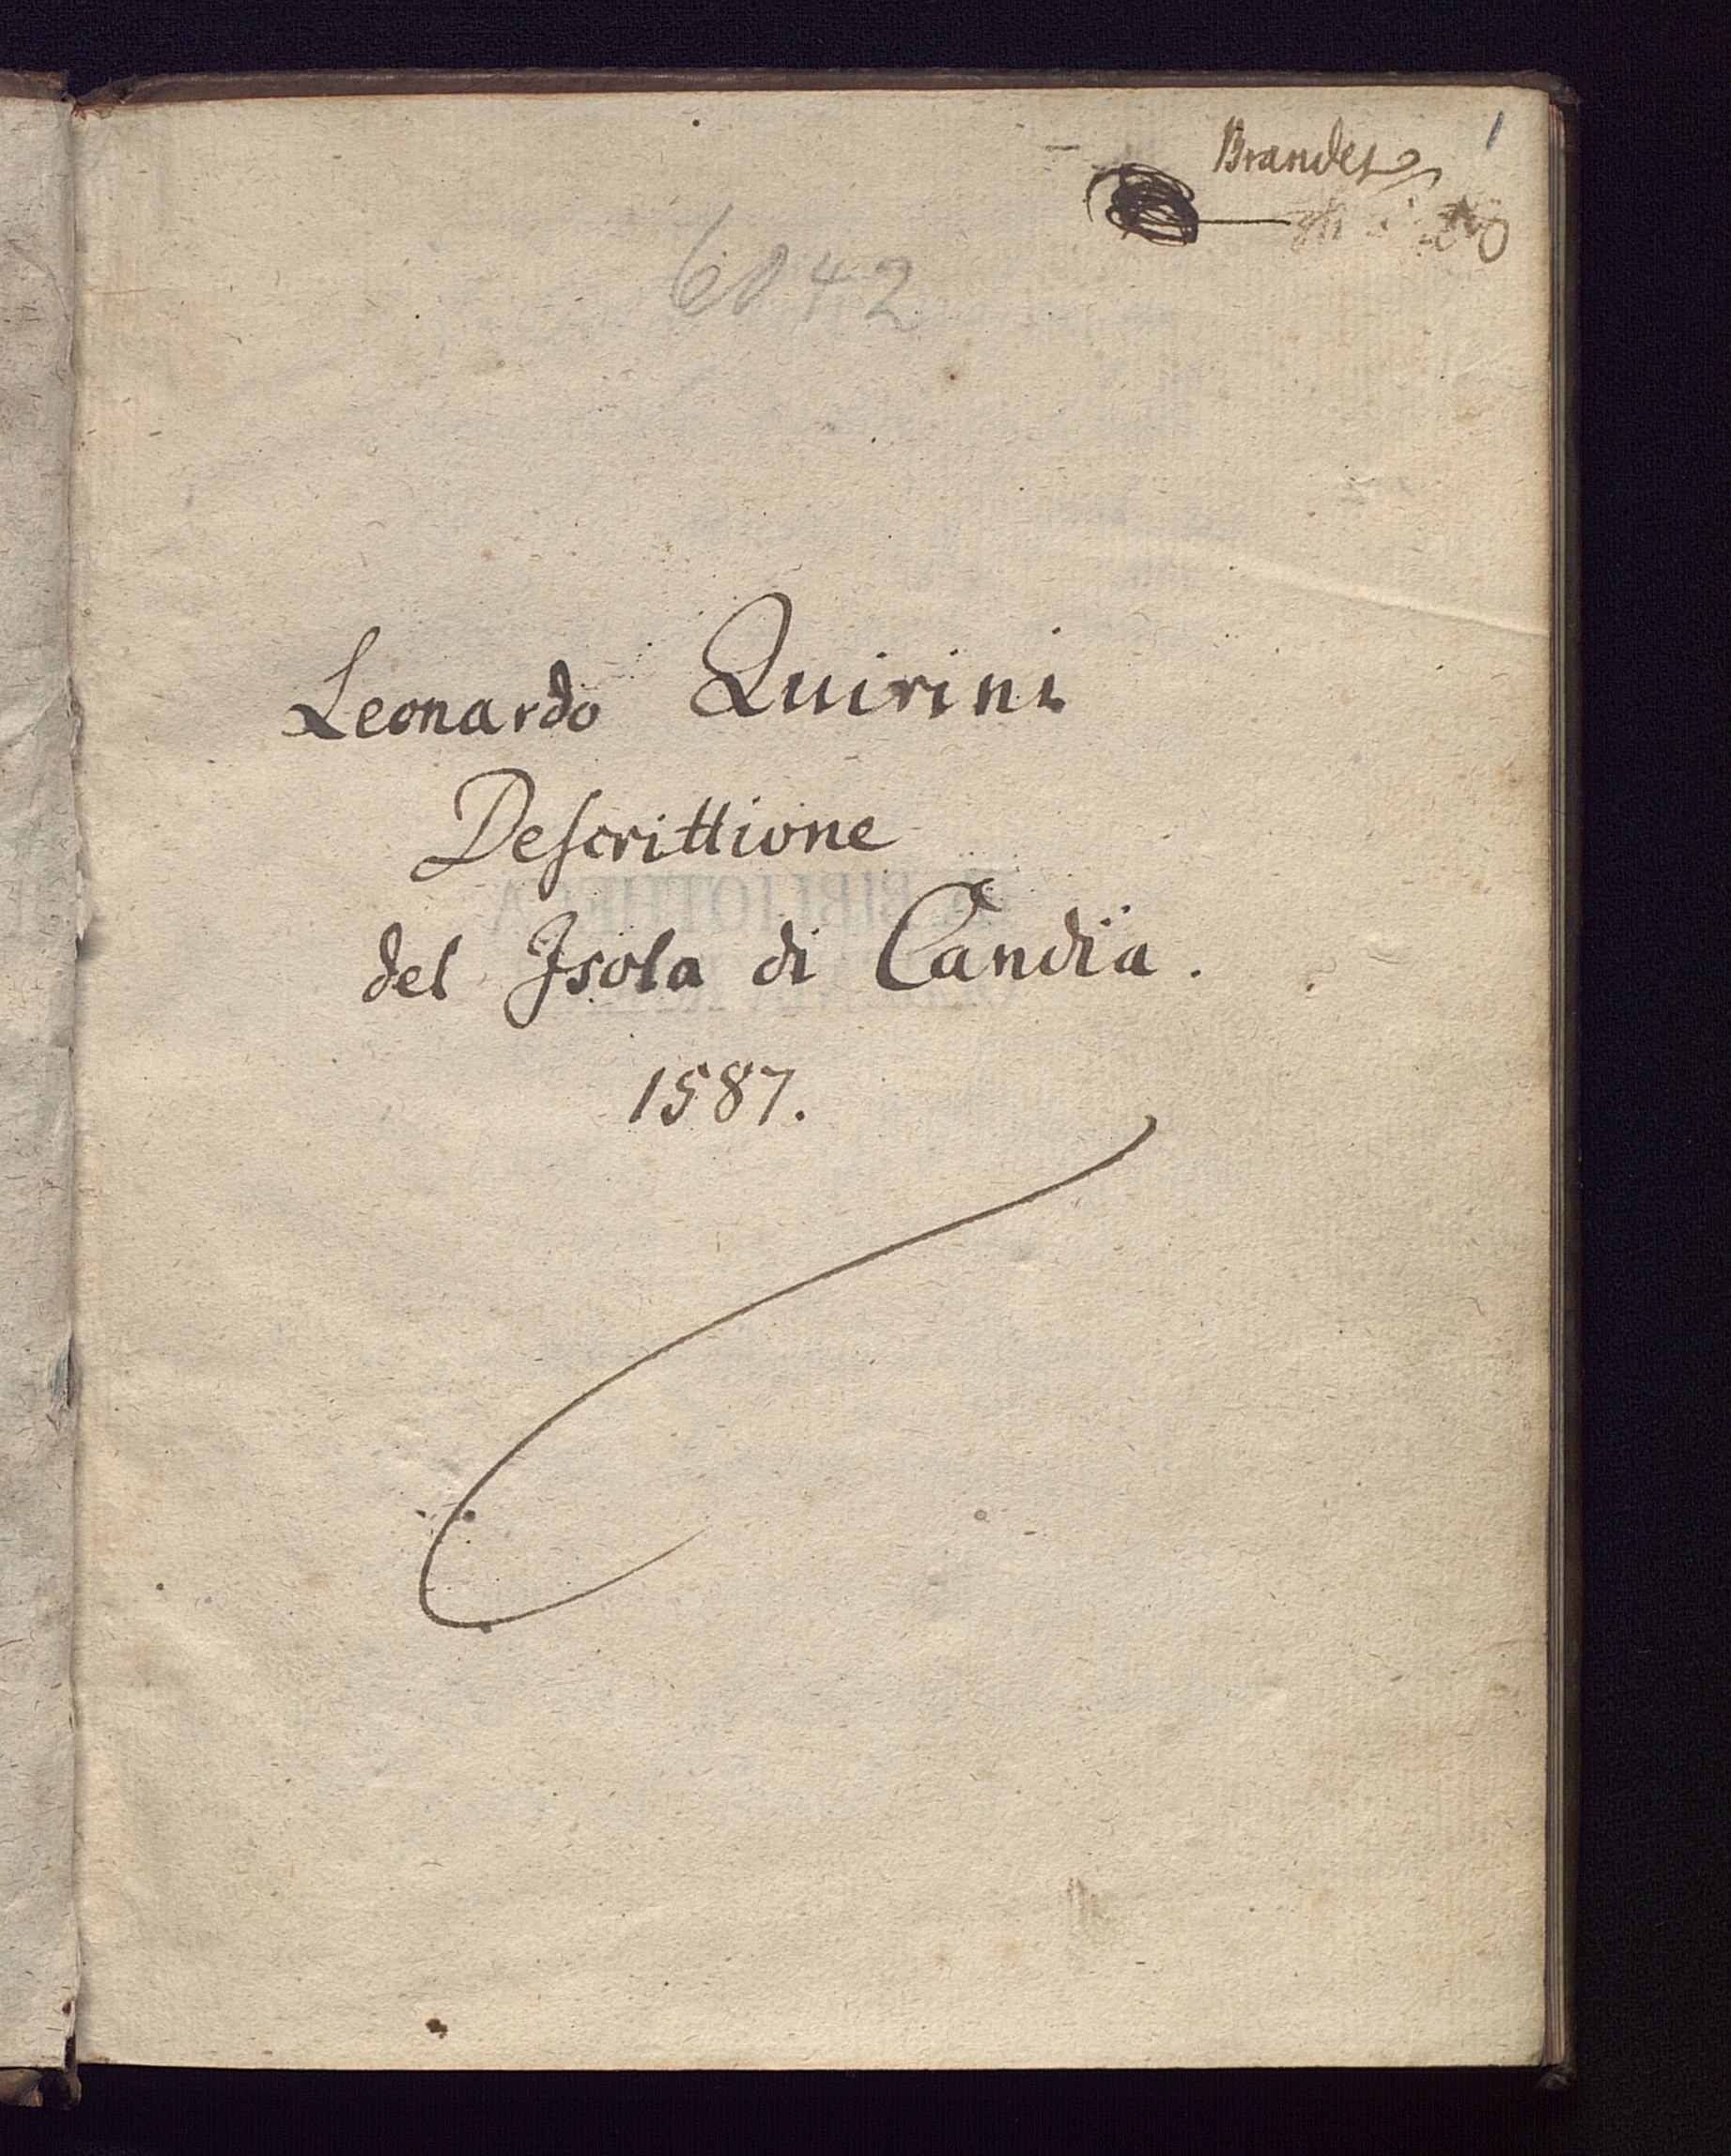 1
Brandes
6842
Leonardo Quirini
Deſcrittione
del Isola di Candïa.
1587.